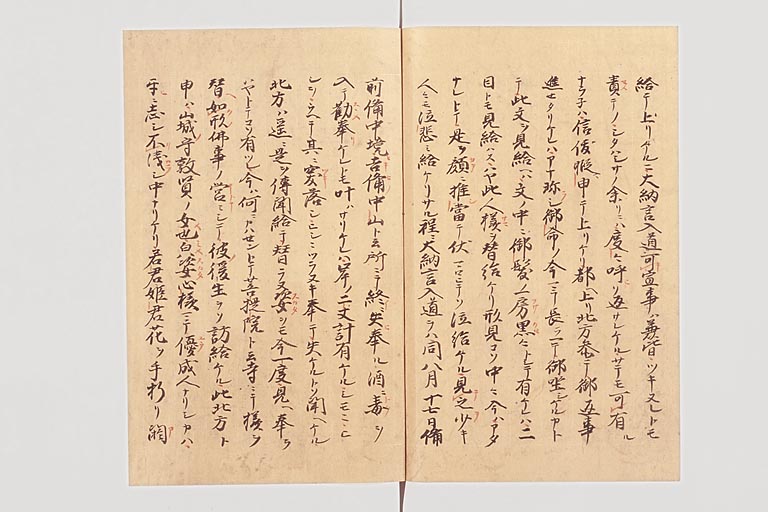 給テ上リケルニ大納言入道可宣事ハ兼皆ツキヌレトモ
責テノシタハシサノ余リニハ度々呼リ返サレケルサテモ可有ル
ナラネハ信俊暇申テ上リケリ都ヘ上リ北方参テ御返事
進セタリケレハアナ珍シ御命ノ今マテ長ラヘテ御坐シケルカト
テ此文ヲ見給ヘハ文ノ中ニ御髪ノ一房黒々トシテ有ケレハ二
目トモ見給ハスハヤ此人様ヲ替給ケリ形見コソ中々今ハアタ
ナレトテ是ヲ顔ニ推當テ伏マロヒテソ泣給ケル見乏少キ
人々モ泣悲ミ給ケリサル程ニ大納言入道ヲハ同八月十七日備
前備中境吉備中山ト云所ニテ終ニ失奉ル酒ニ毒ヲ
入テ勧奉ケレトモ叶ハサリケレハ岸ノ二丈計有ケルシモニヒ
シヲウヘテ其ニ突落シヒシニツラヌキ奉テ失ケルトソ聞ヘケル
北方ハ遥ニ是ヲ傳聞給テ替ラヌ姿ヲモ今一度見ヘ奉ラ
ハヤトテコソ有ツレ今ハ何ニカハセントテ菩提院ト云寺ニテ様ヲ
替如形佛事ノ営ミシテ彼後生ヲソ訪給ケル此北方ト
申ハ山城守敦賢ノ女也皃姿心様マテ優成人ナリシカハ
互ニ志シ不浅シ中ナリケリ若君姫君花ヲ手折リ閼